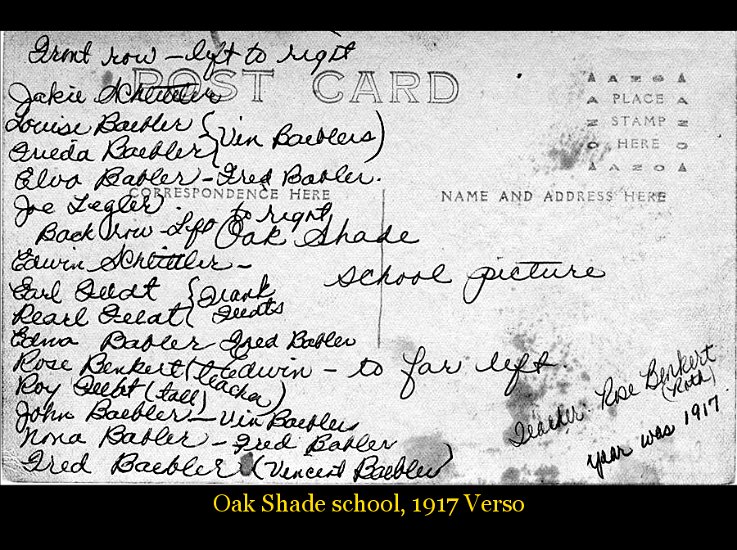 Front row - left to right
POST CARD
Jakie Schittler
Louise Baebler
Frieda Baebler
(Vin Baeblers)
Elva Babler - Fred Babler.
CORRESPONDENCE HERE
Joe Legler
Back row - Left to right
Edwin Schittler -
Earl Feldt
Pearl Feldt
{Frank
Feldts
Edna Babler Fred Babler
Rose Benkert (teacher)
Roy Feldt (tall)
John Baebler - Vin Baebler
Nona Babler - Fred Babler
Fred Baebler (Vincent Baebler)
Oak Shade
school picture
Edwin - to far left.
AZO
PLACE
STAMP
HERE
AZO
NAME AND ADDRESS HERE
Teacher Rose Benkert
(Roth)
year was 1917.
Oak Shade school, 1917 Verso